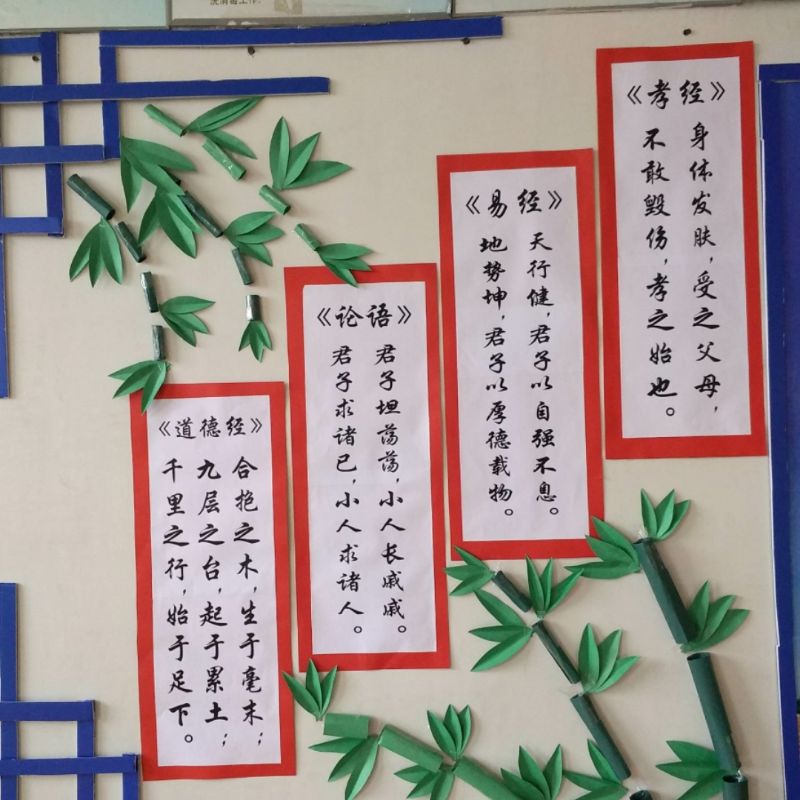 洗消毒工作.
《孝经》
身体发肤，受之父母，
不敢毁伤，孝之始也。
《易经》
天行健，君子以自强不息。
地势坤，君子以厚德载物。
《论语》
君子坦荡荡，小人长戚戚。
君子求诸己，小人求诸人。
《道德经》
合抱之木，生于毫末；
九层之台，起于累土；
千里之行，始于足下。